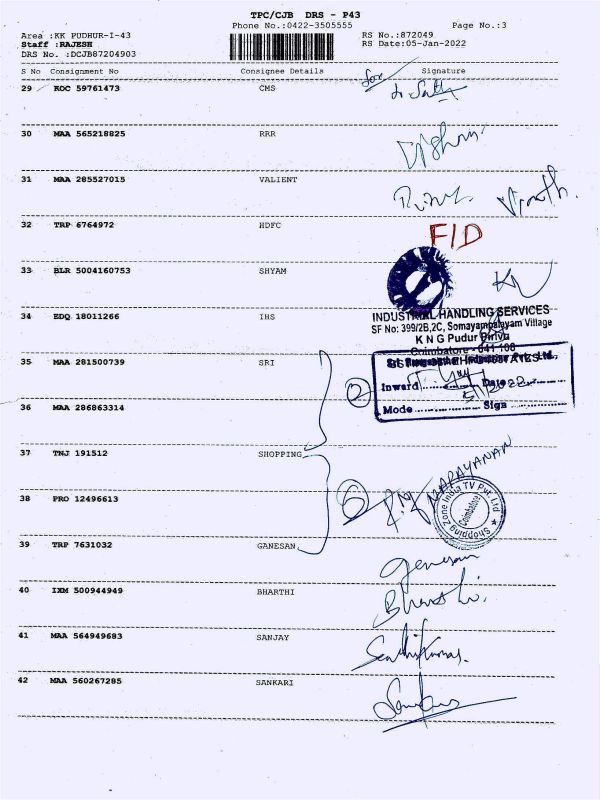 TPC/CJB DRS - P43
Phone No.:0422-3505555 Page No.:3
Area :KK PUDHUR-I-43 RS No.:872049
Staff :RAJESH RS Date:05-Jan-2022
DRS No. :DCJB87204903
S No Consignment No Consignee Details Signature
29 KOC 59761473 CMS for
30 MAA 565218825 RRR Vishnu.
31 MAA 285527015 VALIENT
32 TRP 6764972 HDFC FID
33 BLR 5004160753 SHYAM
34 EDQ 18011266 IHS
INDUSTRIAL HANDLING SERVICES
SF No: 399/2B,2C, Somayampalayam Village
K N G Pudur Pirivu
Coimbatore - 641 108
35 MAA 281500739 SRI 2
Inward Date
5/1/2022
Mode Sign
36 MAA 286863314
37 TNJ 191512 SHOPPING
38 PRO 12496613
Shopping Zone India TV Pvt Ltd
Coimbatore
39 TRP 7631032 GANESAN Ganesan
40 IXM 500944949 BHARTHI Bharathi.
41 MAA 564949683 SANJAY Senthilkumar.
42 MAA 560267285 SANKARI